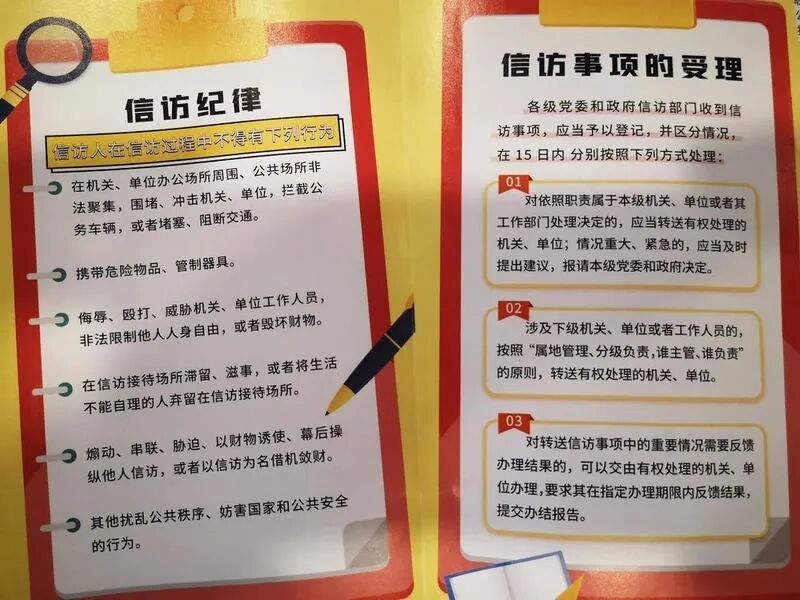 信访纪律
信访人在信访过程中不得有下列行为
在机关、单位办公场所周围、公共场所非
法聚集，围堵、冲击机关、单位，拦截公
务车辆，或者堵塞、阻断交通。
携带危险物品、管制器具。
侮辱、殴打、威胁机关、单位工作人员，
非法限制他人人身自由，或者毁坏财物。
在信访接待场所滞留、滋事，或者将生活
不能自理的人弃留在信访接待场所。
煽动、串联、胁迫、以财物诱使、幕后操
纵他人信访，或者以信访为名借机敛财。
其他扰乱公共秩序、妨害国家和公共安全
的行为。
信访事项的受理
各级党委和政府信访部门收到信
访事项，应当予以登记，并区分情况，
在 15 日内 分别按照下列方式处理：
01
对依照职责属于本级机关、单位或者其
工作部门处理决定的，应当转送有权处理的
机关、单位；情况重大、紧急的，应当及时
提出建议，报请本级党委和政府决定。
02
涉及下级机关、单位或者工作人员的，
按照“属地管理、分级负责，谁主管、谁负责”
的原则，转送有权处理的机关、单位。
03
对转送信访事项中的重要情况需要反馈
办理结果的，可以交由有权处理的机关、单
位办理，要求其在指定办理期限内反馈结果，
提交办结报告。